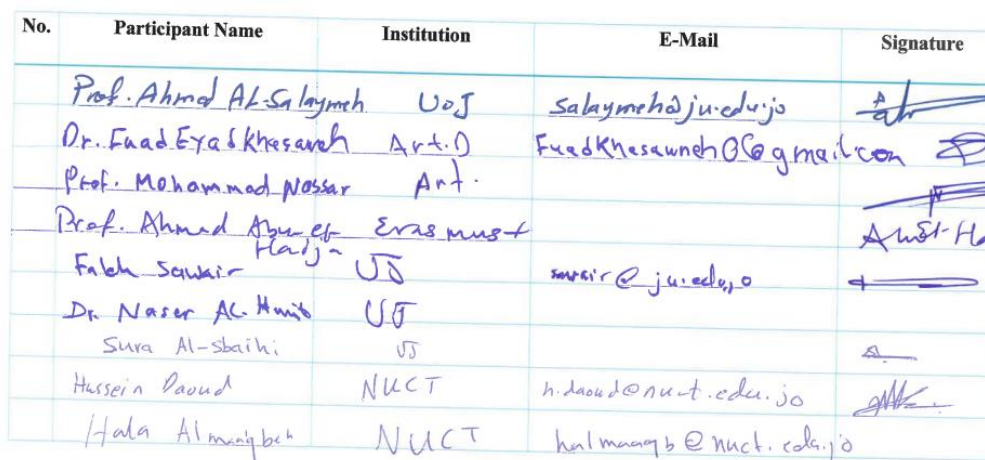 No. Participant Name Institution E-Mail Signature
Prof. Ahmed AL-Salaymeh UoJ salaymeh@ju.edu.jo
Dr. Fuad Eyad Khesawneh Art.D FuadKhesawneh06@gmail.com
Prof. Mohammad Nassar Art.
Prof. Ahmed Abu el Erasmus+
Hadja
Faleh Sawair UJ sawair@ju.edu.jo
Dr. Naser AL- UJ
Sura Al-sbaihi UJ
Hussein Daoud NUCT h.daoud@nuct.edu.jo
Hala Almaaqbeh NUCT halmaaqb@nuct.edu.jo